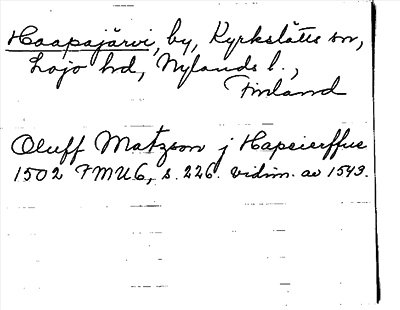 Haapajärvi, by, Kyrkslätts sn,
Lojo hd, Nylands l.,
Finland
Oluff Matzson j Hapeierffue
1502 FMU6, s. 226. vidim. av 1543.